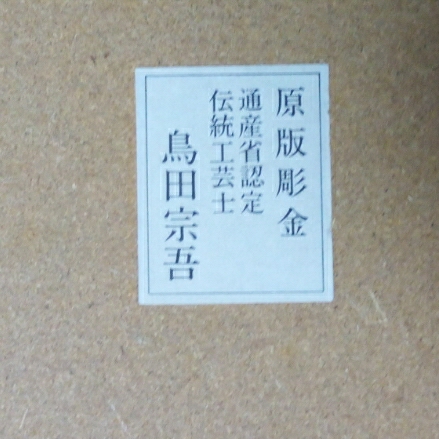 原版彫金
通産省認定
伝統工芸士
鳥田宗吾